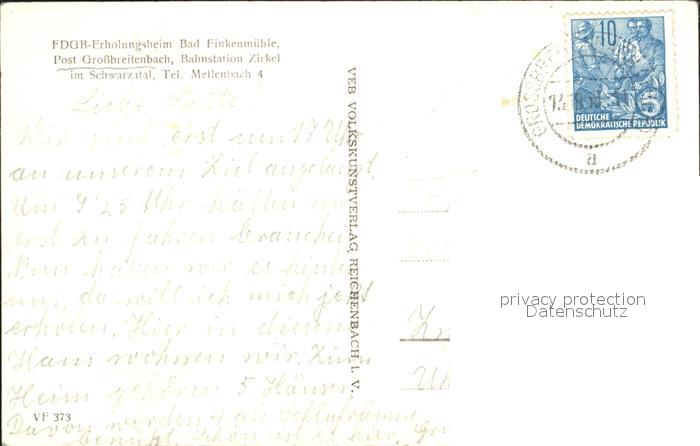 FDGB-Erholungsheim Bad Finkenmühle,
Post Großbreitenbach, Bahnstation Zirkel
im Schwarzatal, Tel. Mellenbach 4
Liebe Lotte!
Wir sind erst um 17 Uhr
an unserem Ziel angelangt.
Um 9 25 Uhr hätten wir
erst zu fahren brauchen.
Nun haben wir es hinter
uns, da will ich mich jetzt
erholen. Hier in diesem
Haus wohnen wir. Zum
Heim gehören 5 Häuser.
Davon werden 4 als Schlafräume
benützt. Schön ist es hier.
VF 373
VEB VOLKSKUNSTVERLAG REICHENBACH i. V.
10
5
DEUTSCHE
DEMOKRATISCHE REPUBLIK
a
privacy protection
Datenschutz